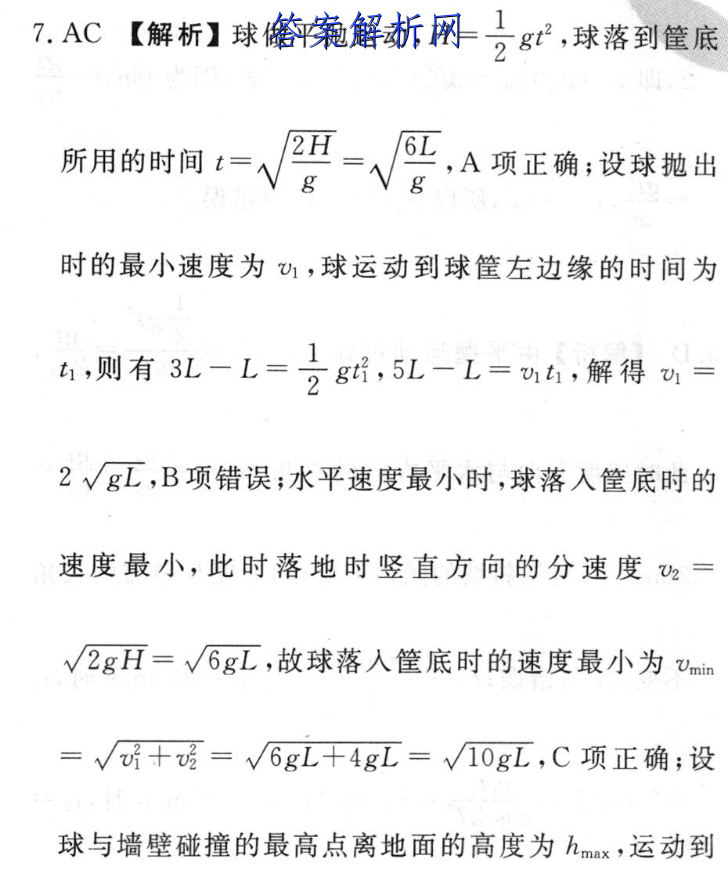 7. AC 【解析】球做平抛运动,H=\frac{1}{2}gt²,球落到筐底
答案解析网
所用的时间 t=\sqrt{\frac{2H}{g}}=\sqrt{\frac{6L}{g}},A 项正确;设球抛出
时的最小速度为 v₁,球运动到球筐左边缘的时间为
t₁,则有 3L-L=\frac{1}{2}gt₁²,5L-L=v₁t₁,解得 v₁=
2\sqrt{gL},B项错误;水平速度最小时,球落入筐底时的
速度最小,此时落地时竖直方向的分速度 v₂=
\sqrt{2gH}=\sqrt{6gL},故球落入筐底时的速度最小为 v_{min}
=\sqrt{v₁²+v₂²}=\sqrt{6gL+4gL}=\sqrt{10gL},C 项正确;设
球与墙壁碰撞的最高点离地面的高度为 h_{max},运动到